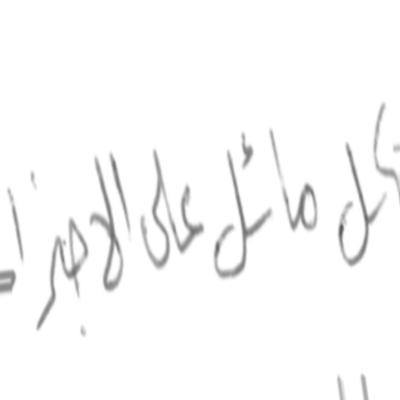 كل مائل على الاجزاء